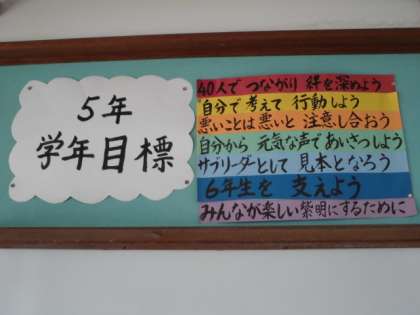 5年
学年目標
40人で つながり 絆を深めよう
自分で考えて 行動しよう
悪いことは悪いと 注意し合おう
自分から 元気な声であいさつしよう
サブリーダーとして 見本となろう
6年生を 支えよう
みんなが楽しい紫明にするために